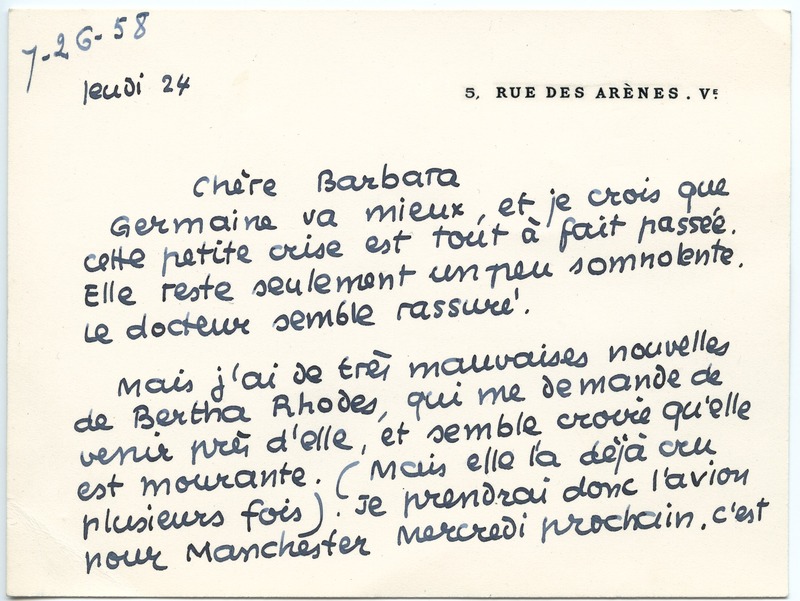 7-26-58
Jeudi 24
5, RUE DES ARÈNES. Vᴱ
Chère Barbara
Germaine va mieux, et je crois que
cette petite crise est tout à fait passée.
Elle reste seulement un peu somnolente.
Le docteur semble rassuré.
Mais j'ai de très mauvaises nouvelles
de Bertha Rhodes, qui me demande de
venir près d'elle, et semble croire qu'elle
est mourante. (Mais elle l'a déjà cru
plusieurs fois). Je prendrai donc l'avion
pour Manchester Mercredi prochain. C'est